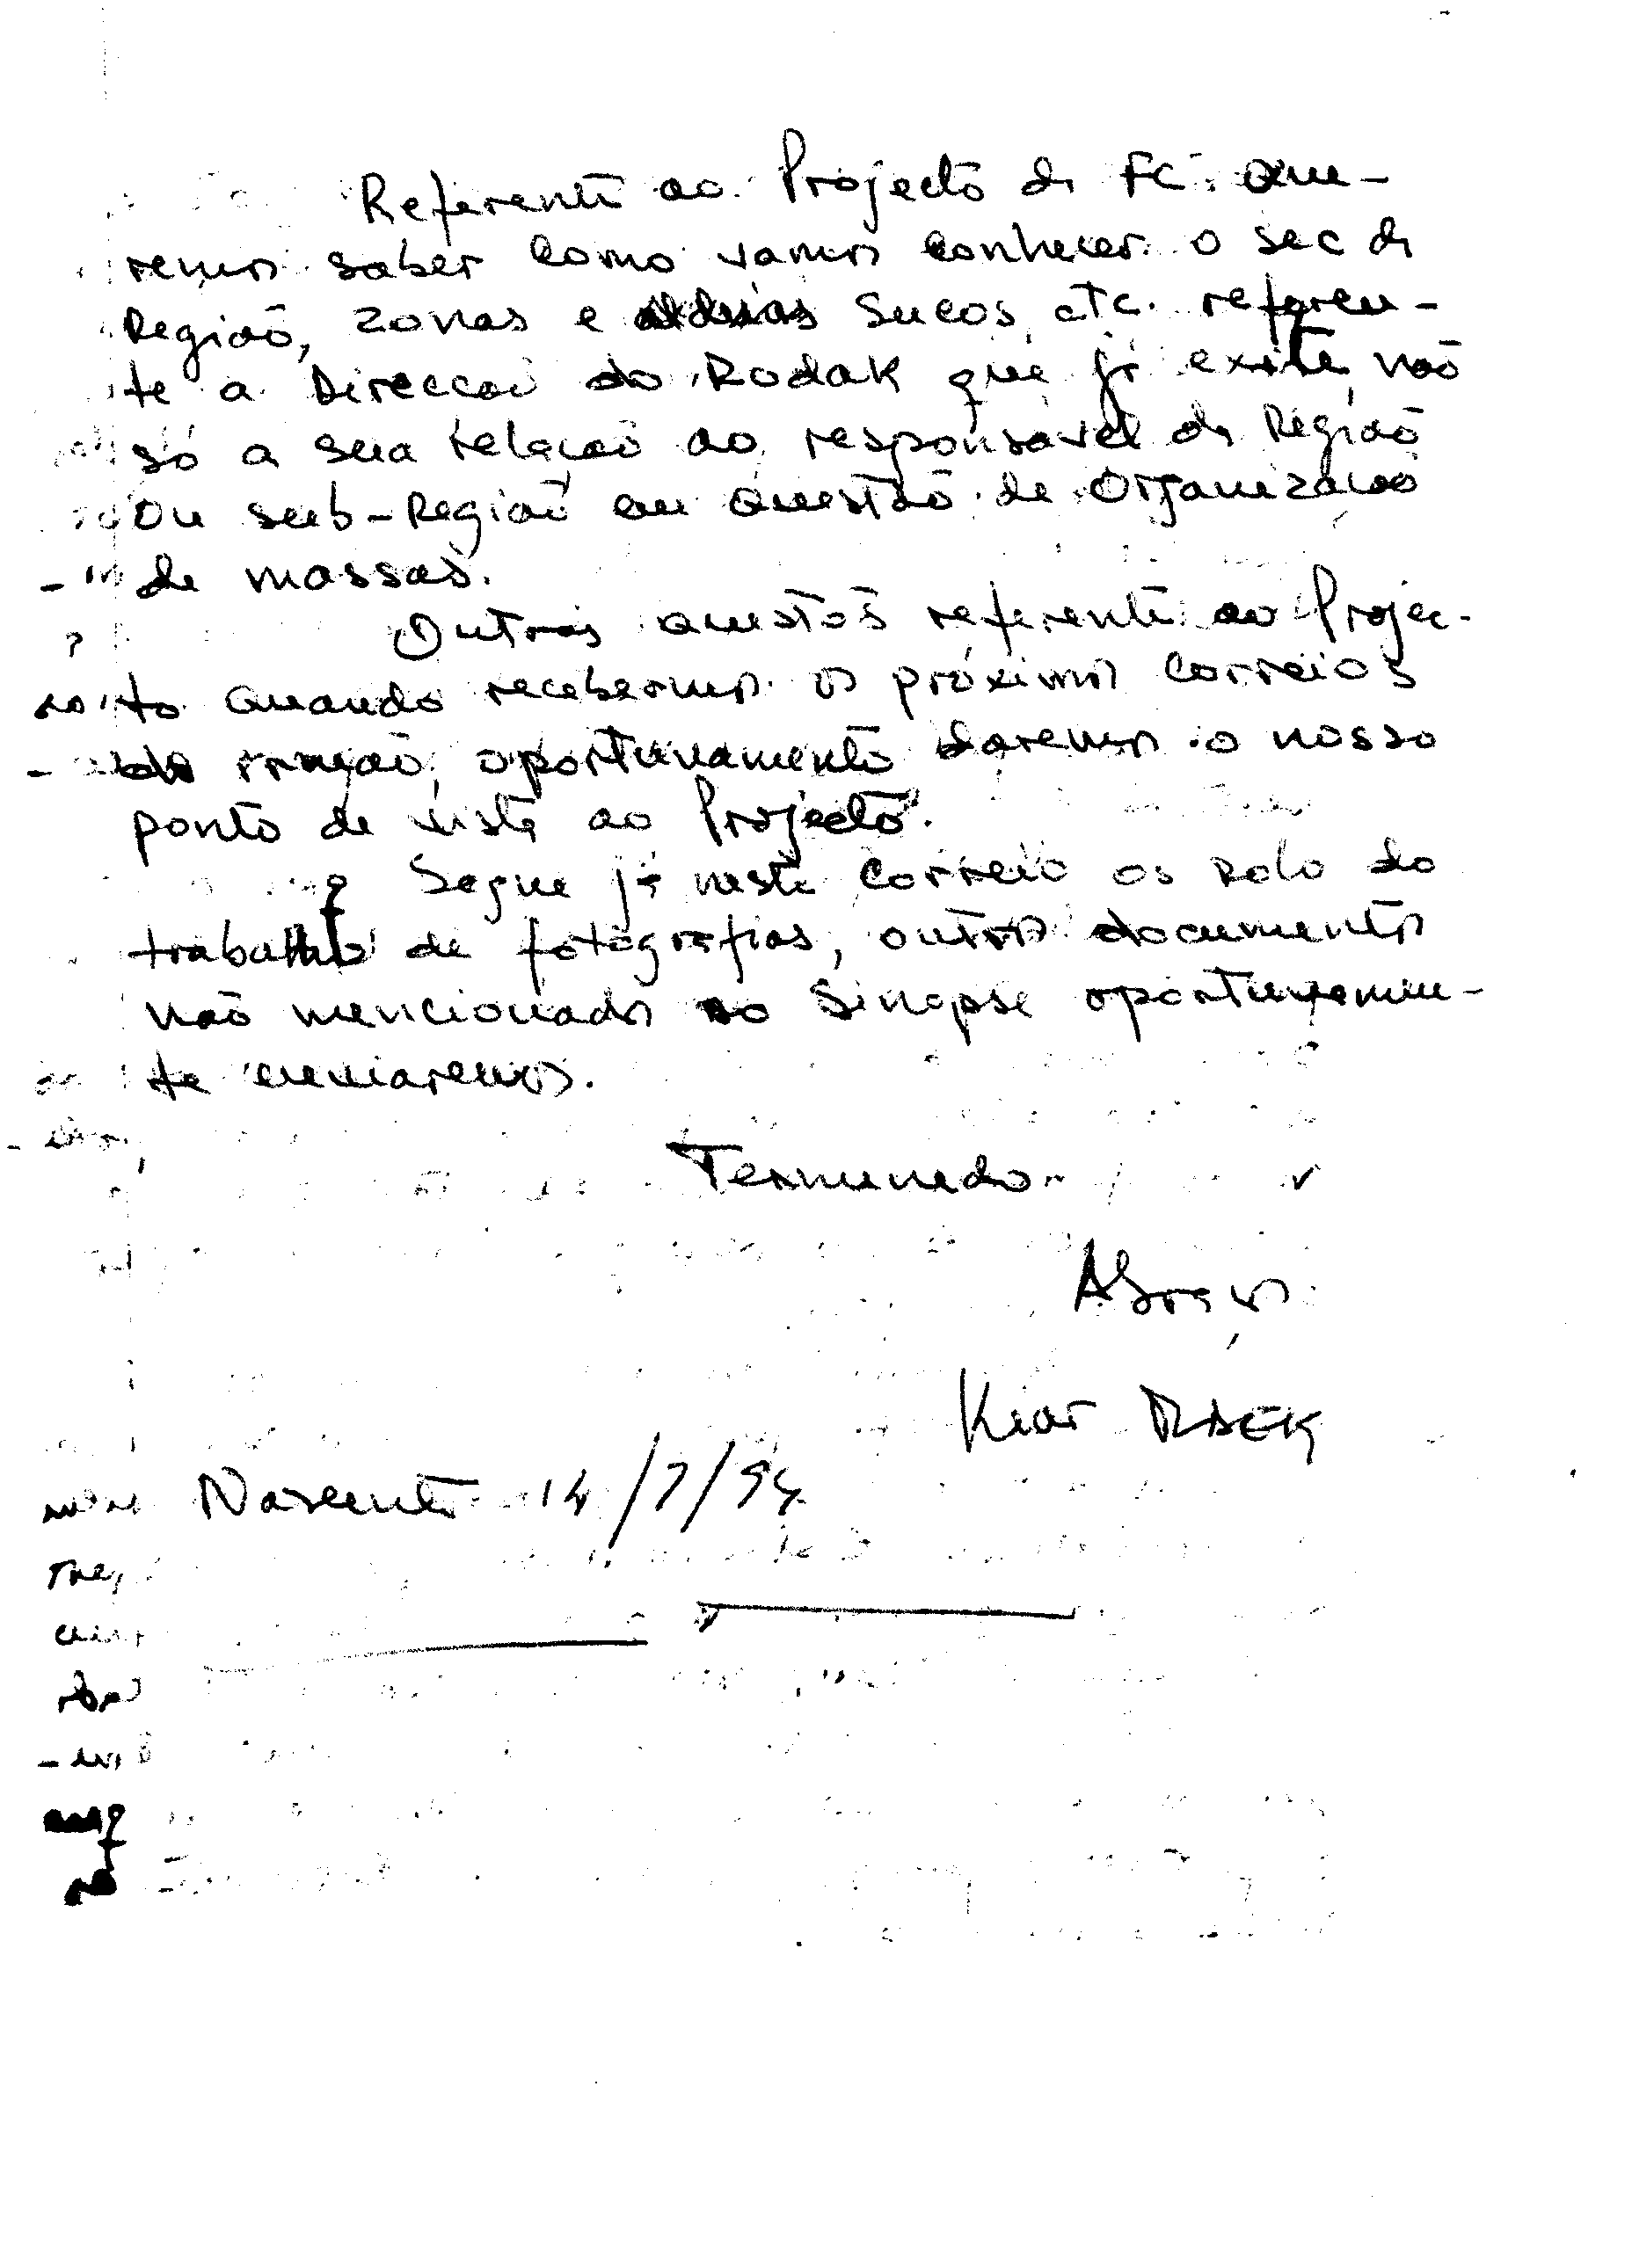 Referente ao Projecto de FC. Que-
remos saber como vamos conhecer o sec de
Região, zonas e aldeias Sucos, etc. referen-
te a Direcção do Rodak que já existe, não
só a sua relação ao responsável de Região
ou sub-Região em questão de Organização
de massas.
Outras questões referente ao Projec-
to quando recebermos os próximos correios
do irmão, oportunamente daremos o nosso
ponto de vista ao Projecto.
Segue já neste correio os rolo do
trabalho de fotografias, outros documentos
não mencionados no Sinopse oportunamen-
te enviaremos.
Terminado
Abraços
Kiar RAEK
Nascente 14/7/94